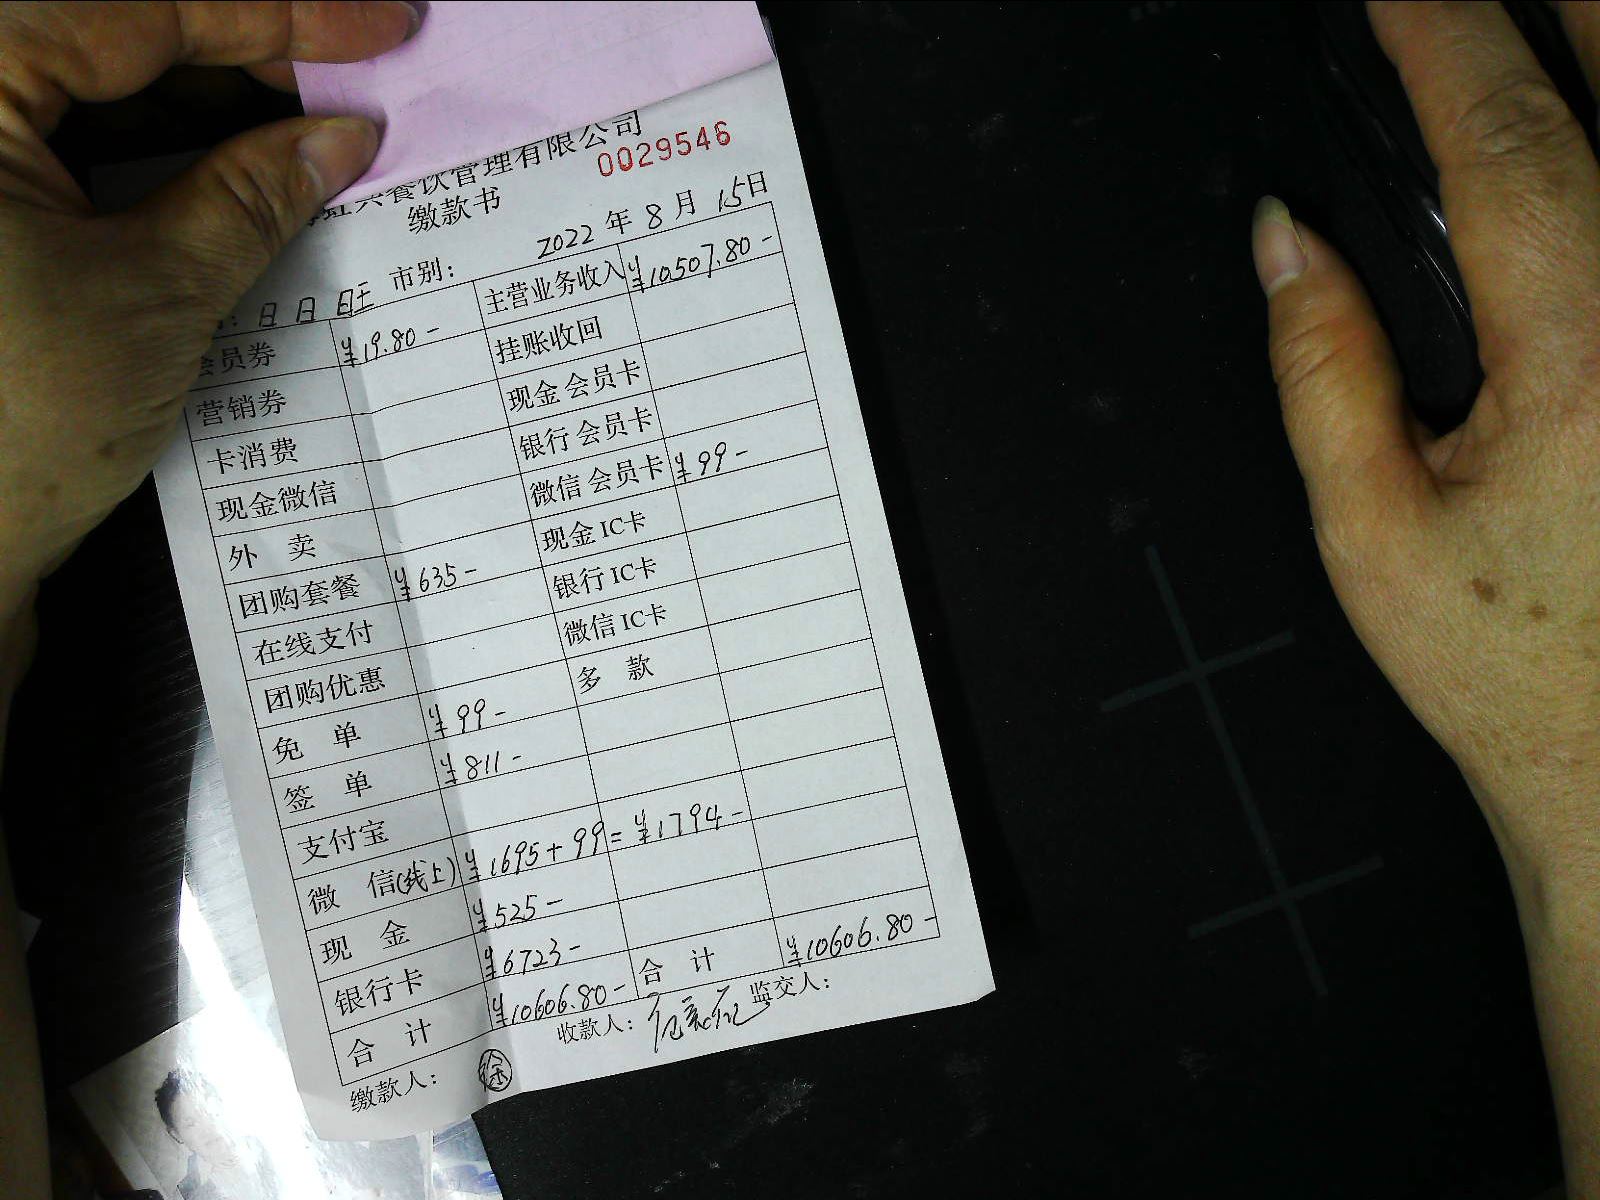 餐饮管理有限公司
0029546
缴款书
2022 年 8 月 15日
: 日 日 旺 市别:
会员券 ¥19.80- 主营业务收入 ¥10507.80-
营销券 挂账收回
卡消费 现金 会员卡
现金微信 银行 会员卡
外 卖 微信 会员卡 ¥99-
团购套餐 ¥635- 现金 IC卡
在线支付 银行 IC卡
团购优惠 微信 IC卡
免 单 ¥99- 多 款
签 单 ¥811-
支付宝
微 信(线上) ¥1695+99=¥1794-
现 金 ¥525-
银行卡 ¥6723-
合 计 ¥10606.80- 合 计 ¥10606.80-
缴款人: 徐 收款人: 监交人: